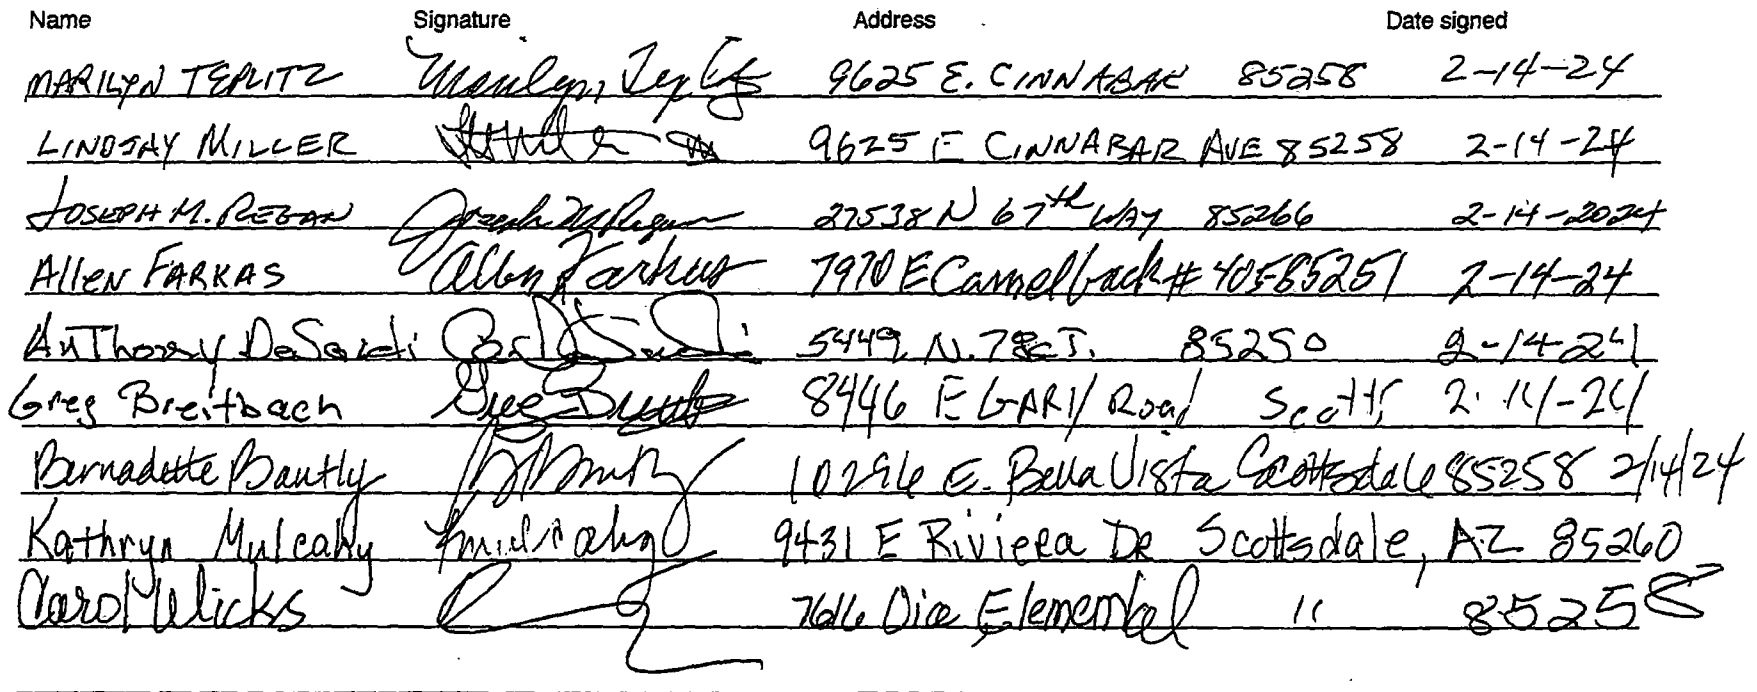 Name Signature Address Date signed
MARILYN TEPLITZ Marilyn Teplitz 9625 E. CINNABAR 85258 2-14-24
LINDSAY MILLER 9625 E CINNABAR AVE 85258 2-14-24
JOSEPH M. REGAN Joseph M Regan 27538 N 67th WAY 85266 2-14-2024
Allen FARKAS Allen Farkas 7970 E Camelback # 405 85251 2-14-24
AnThony DeSardi 5449 N. 78 85250 2-14-24
Greg Breitbach Greg 8446 E GARY Road Scott 2-14-24
Bernadette Bautly 10296 E. Bella Vista Scottsdale 85258 2/14/24
Kathryn Mulcahy KMulcahy 9431 E Riviera DR Scottsdale, AZ 85260
Carol Wicks 7616 Elemental " 85258